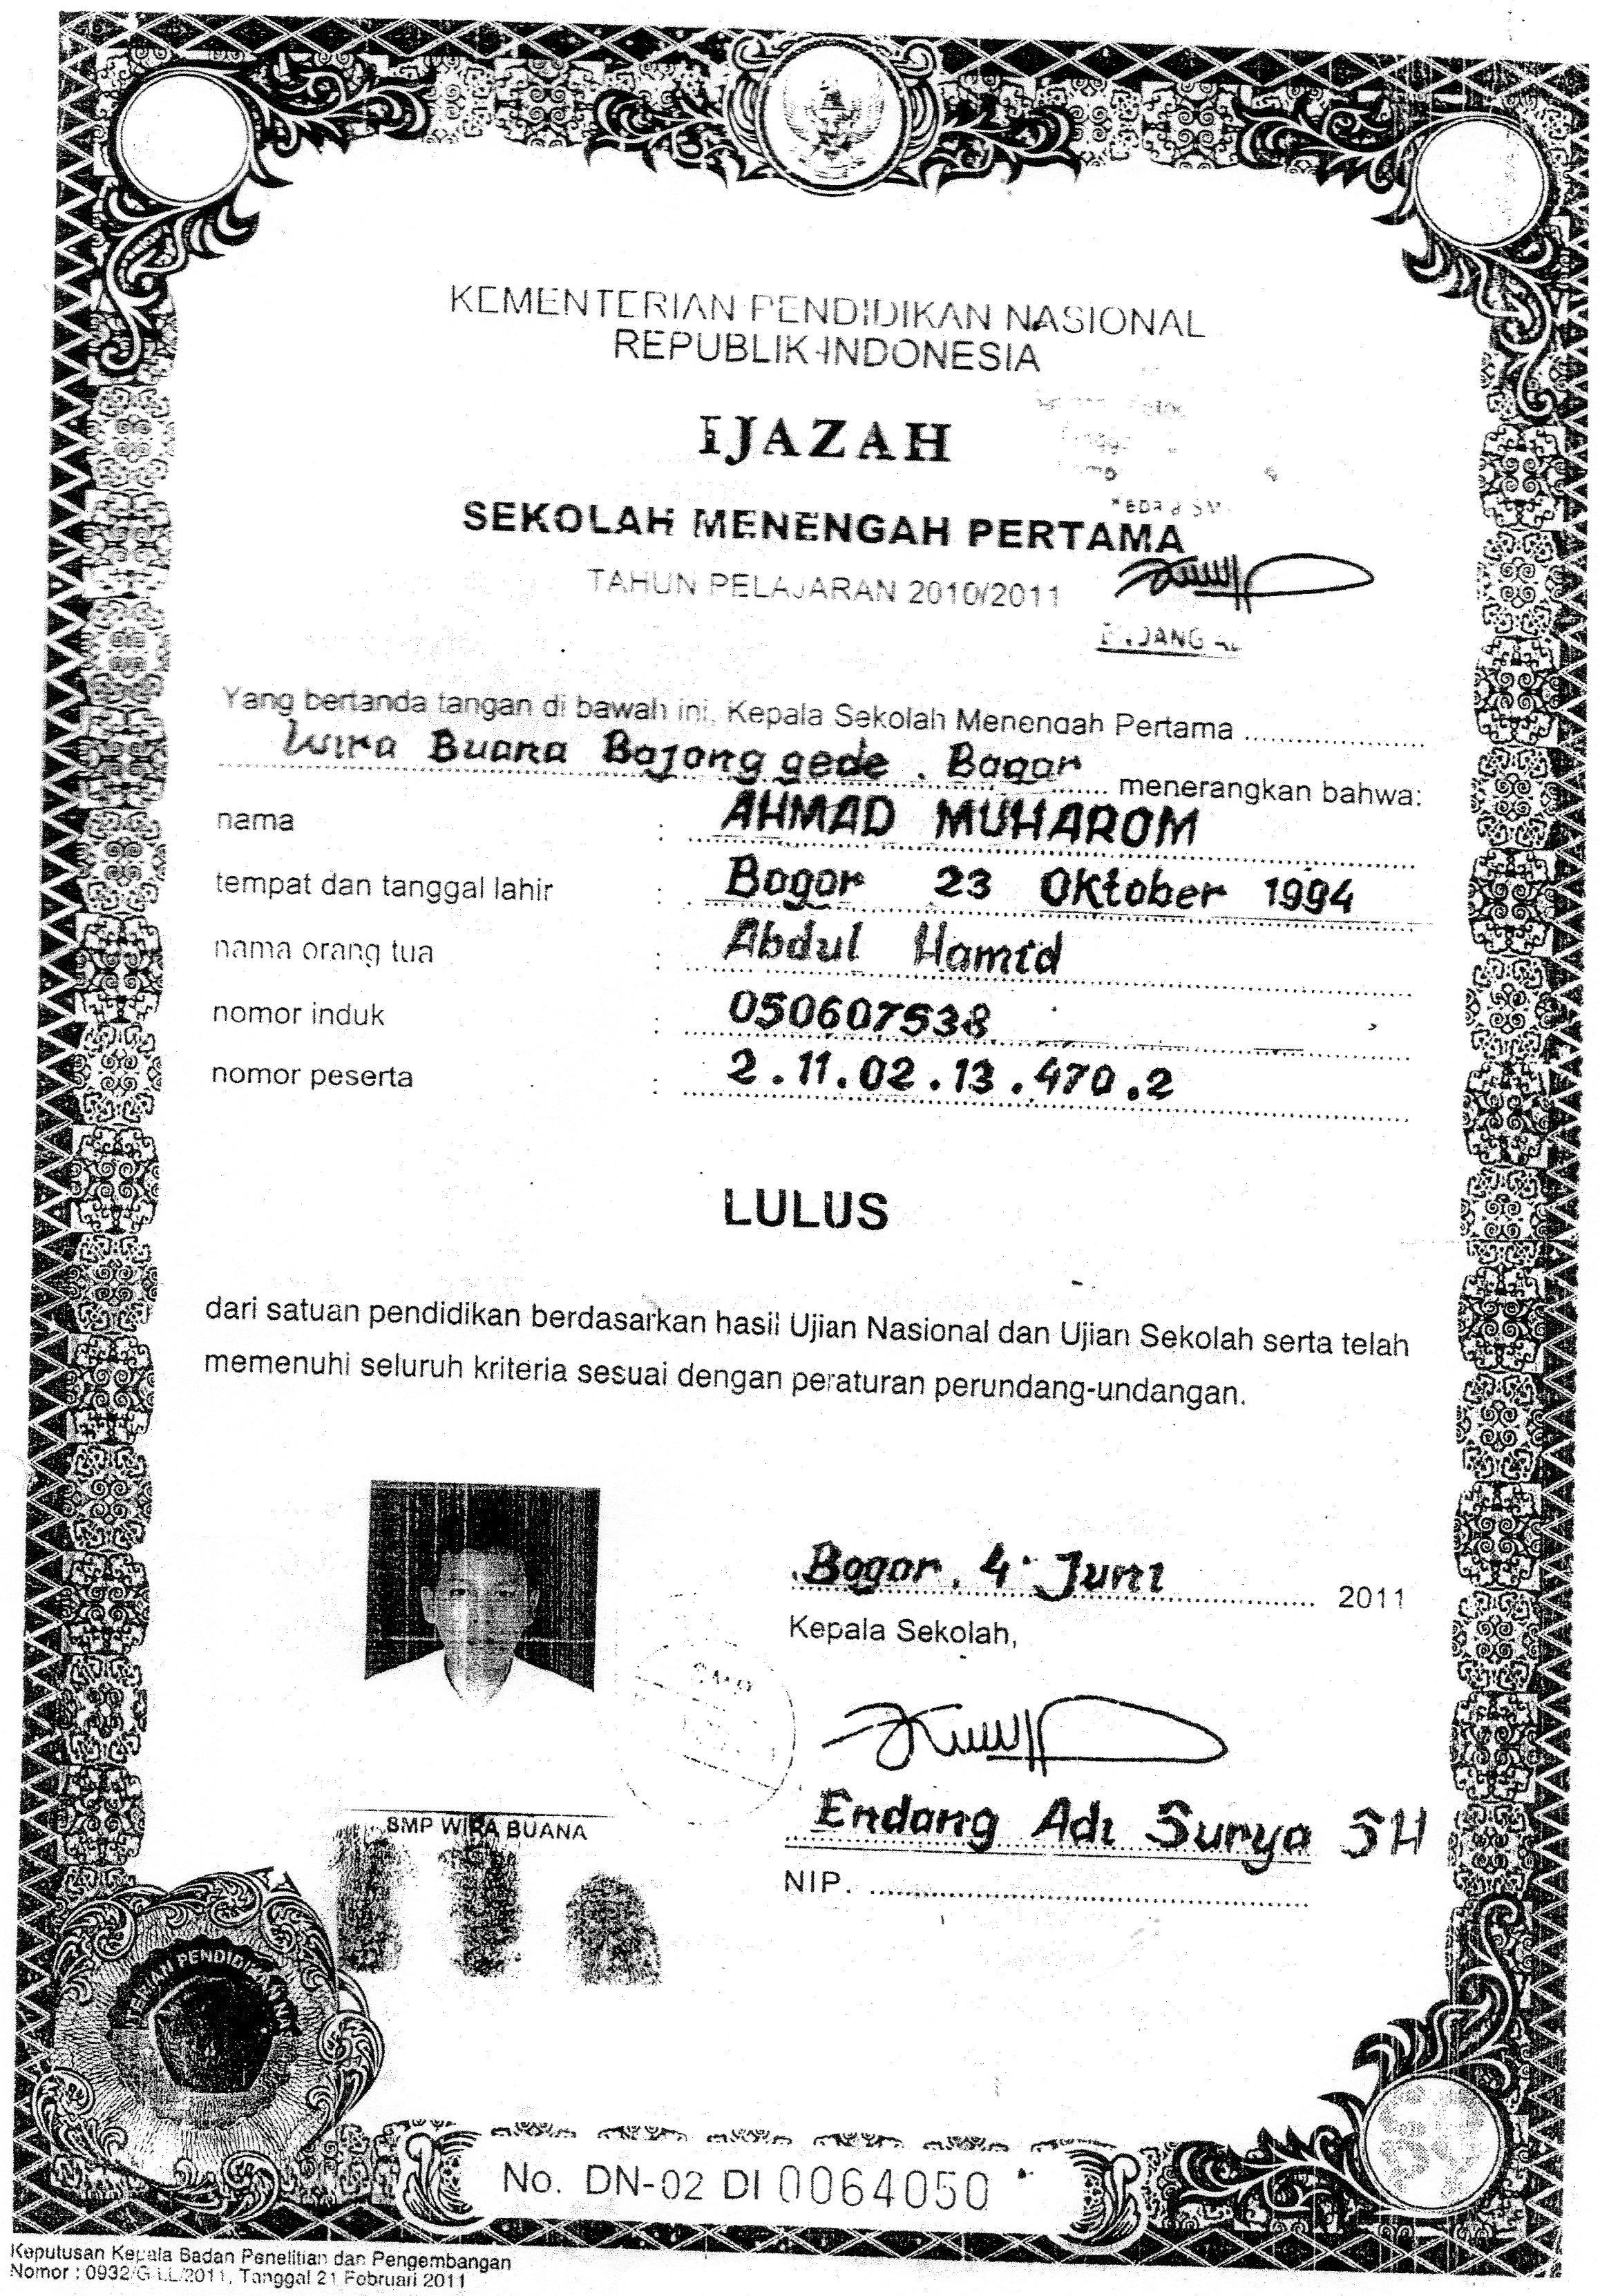 KEMENTERIAN PENDIDIKAN NASIONAL
REPUBLIK INDONESIA
IJAZAH
SEKOLAH MENENGAH PERTAMA
TAHUN PELAJARAN 2010/2011
Yang bertanda tangan di bawah ini, Kepala Sekolah Menengah Pertama
Wira Buana Bojong gede . Bogor menerangkan bahwa:
nama : AHMAD MUHAROM
tempat dan tanggal lahir : Bogor 23 Oktober 1994
nama orang tua : Abdul Hamid
nomor induk : 050607538
nomor peserta : 2.11.02.13.470.2
LULUS
dari satuan pendidikan berdasarkan hasil Ujian Nasional dan Ujian Sekolah serta telah
memenuhi seluruh kriteria sesuai dengan peraturan perundang-undangan.
Bogor, 4 Juni 2011
Kepala Sekolah,
SMP
Endang Adi Surya SH
SMP WIRA BUANA
NIP.
PENDIDIKAN
No. DN-02 DI 0064050
Keputusan Kepala Badan Penelitian dan Pengembangan
Nomor : 0932/G/LL/2011, Tanggal 21 Februari 2011